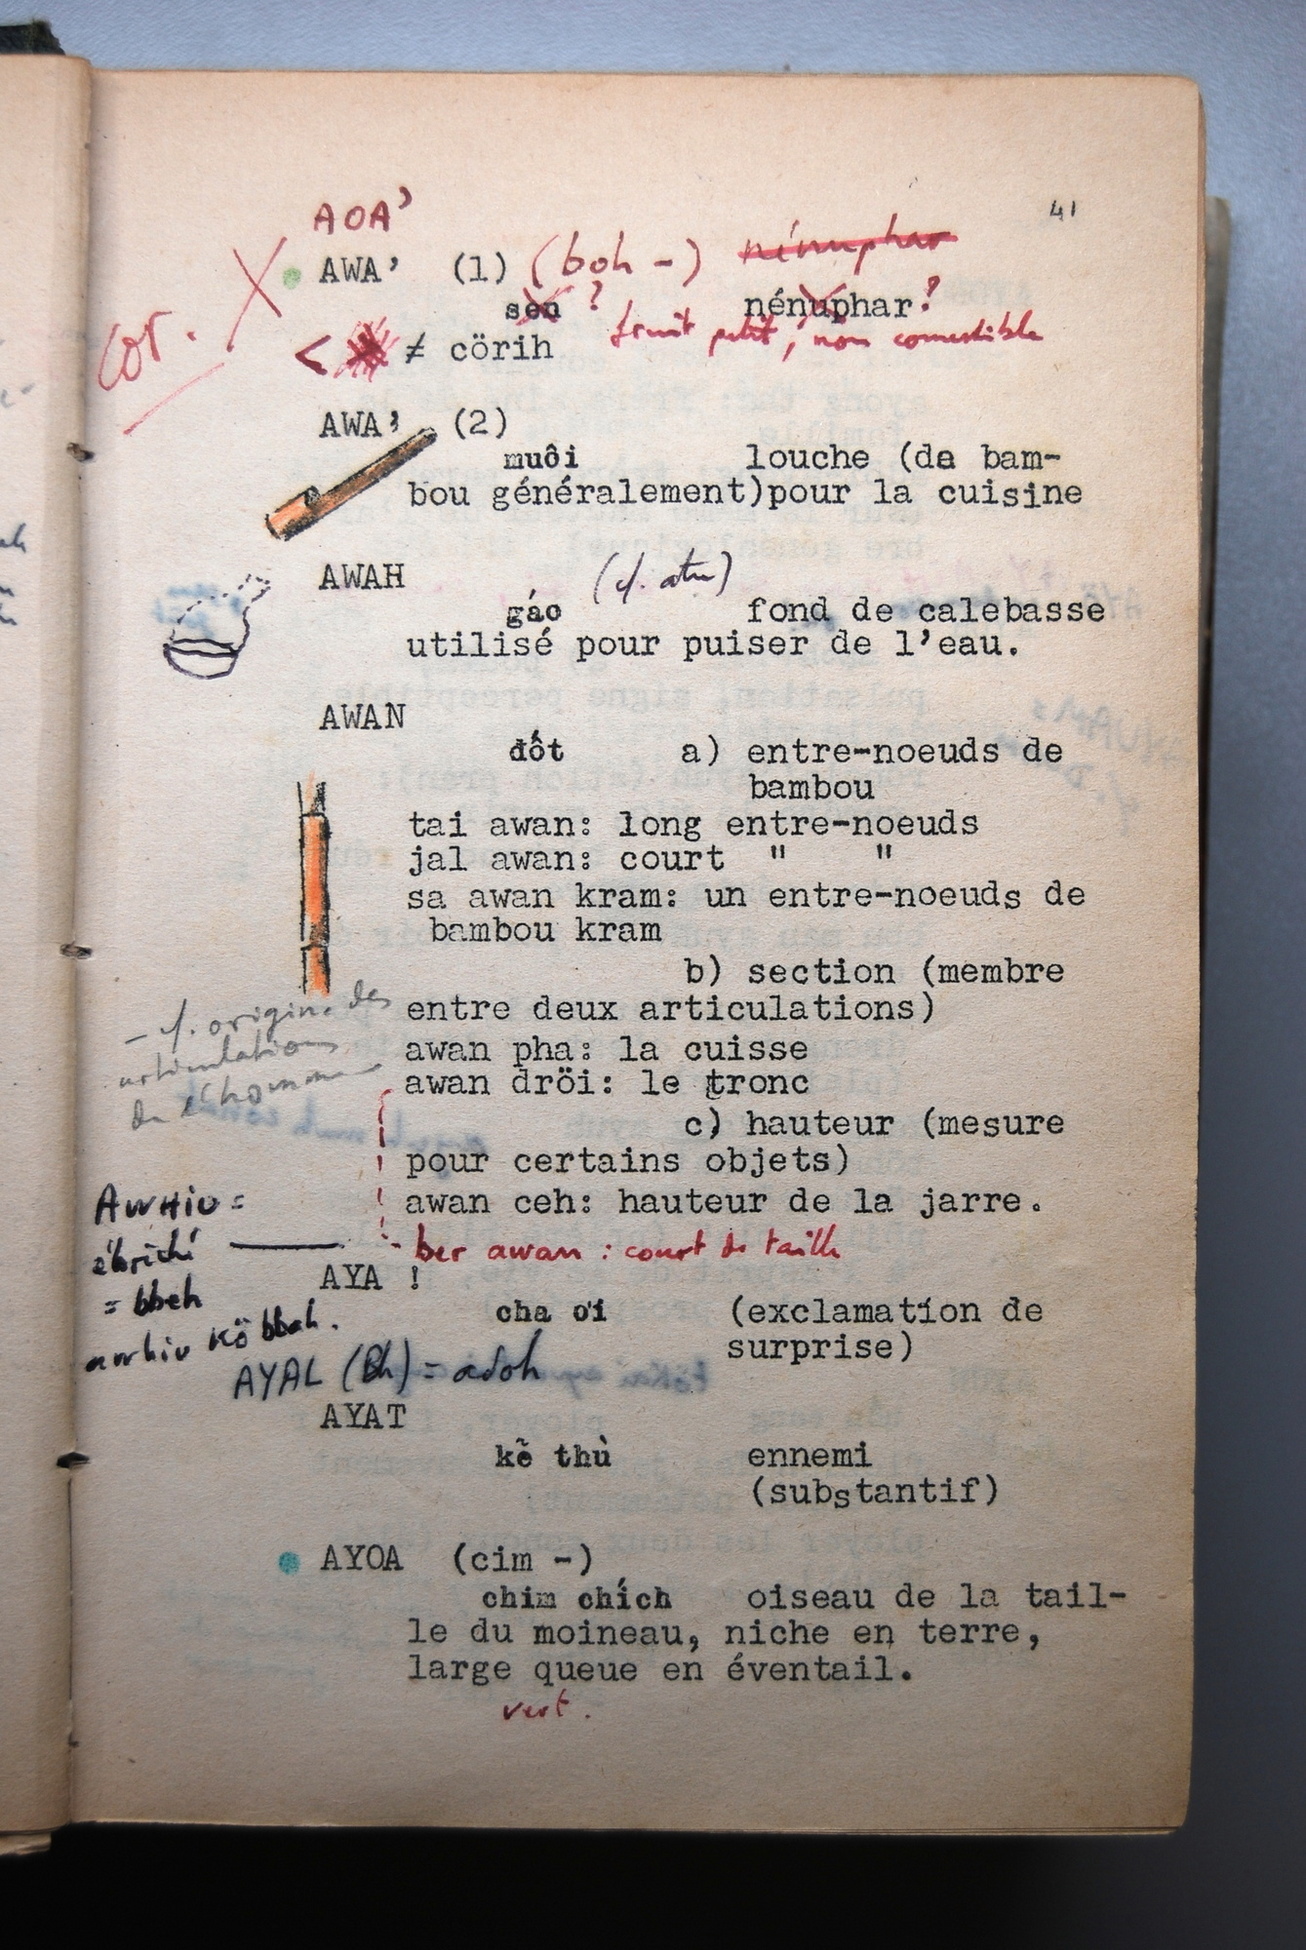 41
AOA'
cor.
AWA' (1) (boh -) nénuphar
sen ? nénuphar?
fruit petit, non comestible
< ≠ cörih
AWA' (2)
muôi louche (de bam-
bou généralement)pour la cuisine
AWAH (cf. atu)
gáo fond de calebasse
utilisé pour puiser de l'eau.
AWAN
đốt a) entre-noeuds de
bambou
tai awan: long entre-noeuds
jal awan: court " "
sa awan kram: un entre-noeuds de
bambou kram
b) section (membre
entre deux articulations)
- cf. origine des
articulations
de l'homme
awan pha: la cuisse
awan dröi: le tronc
c) hauteur (mesure
pour certains objets)
awan ceh: hauteur de la jarre.
ber awan : court de taille
AWHIU =
= bbeh
AYA !
cha ơi (exclamation de
surprise)
AYAL (Bh) = adoh
AYAT
kẽ thù ennemi
(substantif)
AYOA (cim -)
chim chích oiseau de la tail-
le du moineau, niche en terre,
large queue en éventail.
vert.